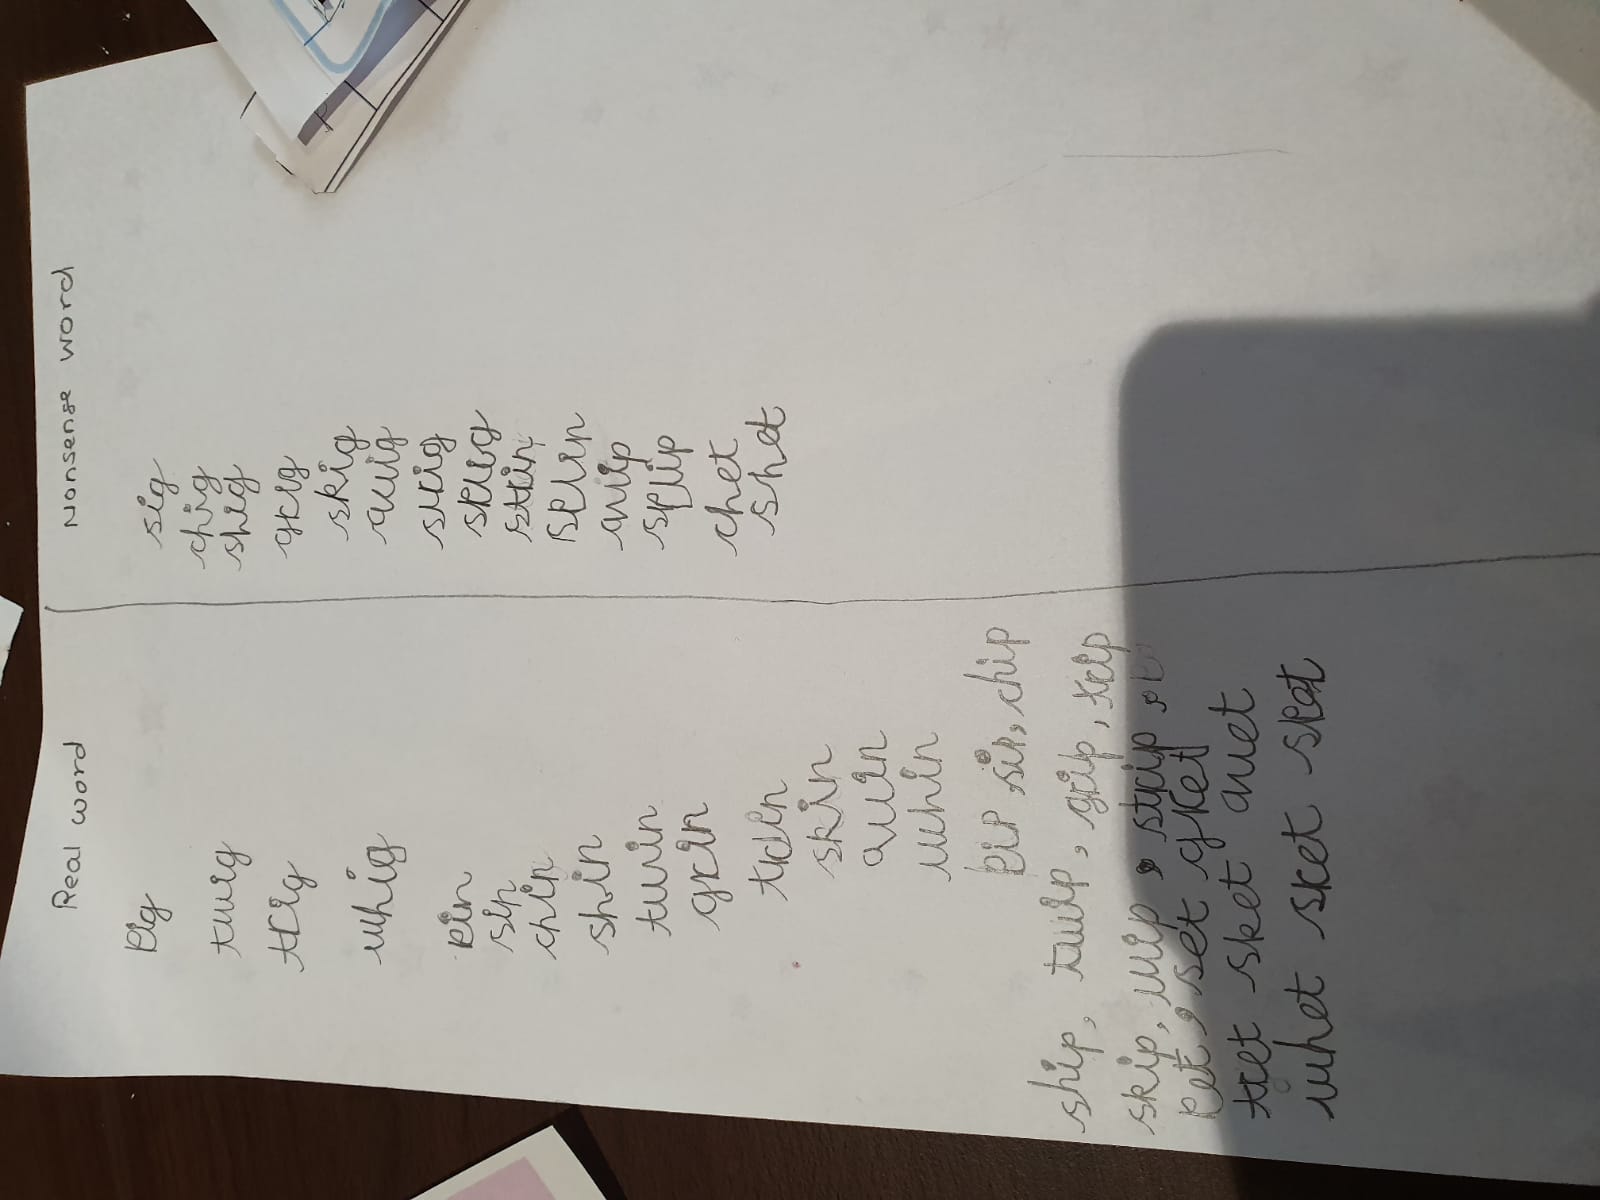 Real word
pig
twig
trig
whig
pin
sin
chin
shin
twin
grin
trin
skin
quin
whin
pip sip, chip
ship, twip, grip, trip
skip, wip, strip,
pet, set gret
tret sket quet
whet sret spot
Nonsense word
sig
chig
shig
grig
skig
quig
srig
sprig
strin
sprin
quip
splip
chet
shet